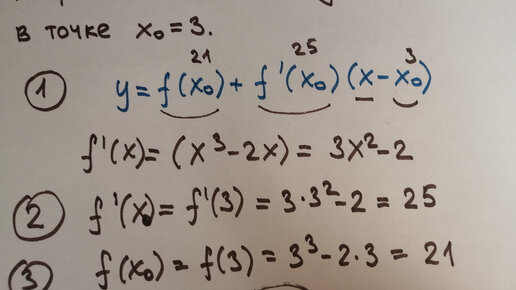 в точке x₀ = 3.
21 25 3
① y = f(x₀) + f'(x₀)(x - x₀)
f'(x) = (x³ - 2x) = 3x² - 2
② f'(x₀) = f'(3) = 3·3² - 2 = 25
③ f(x₀) = f(3) = 3³ - 2·3 = 21